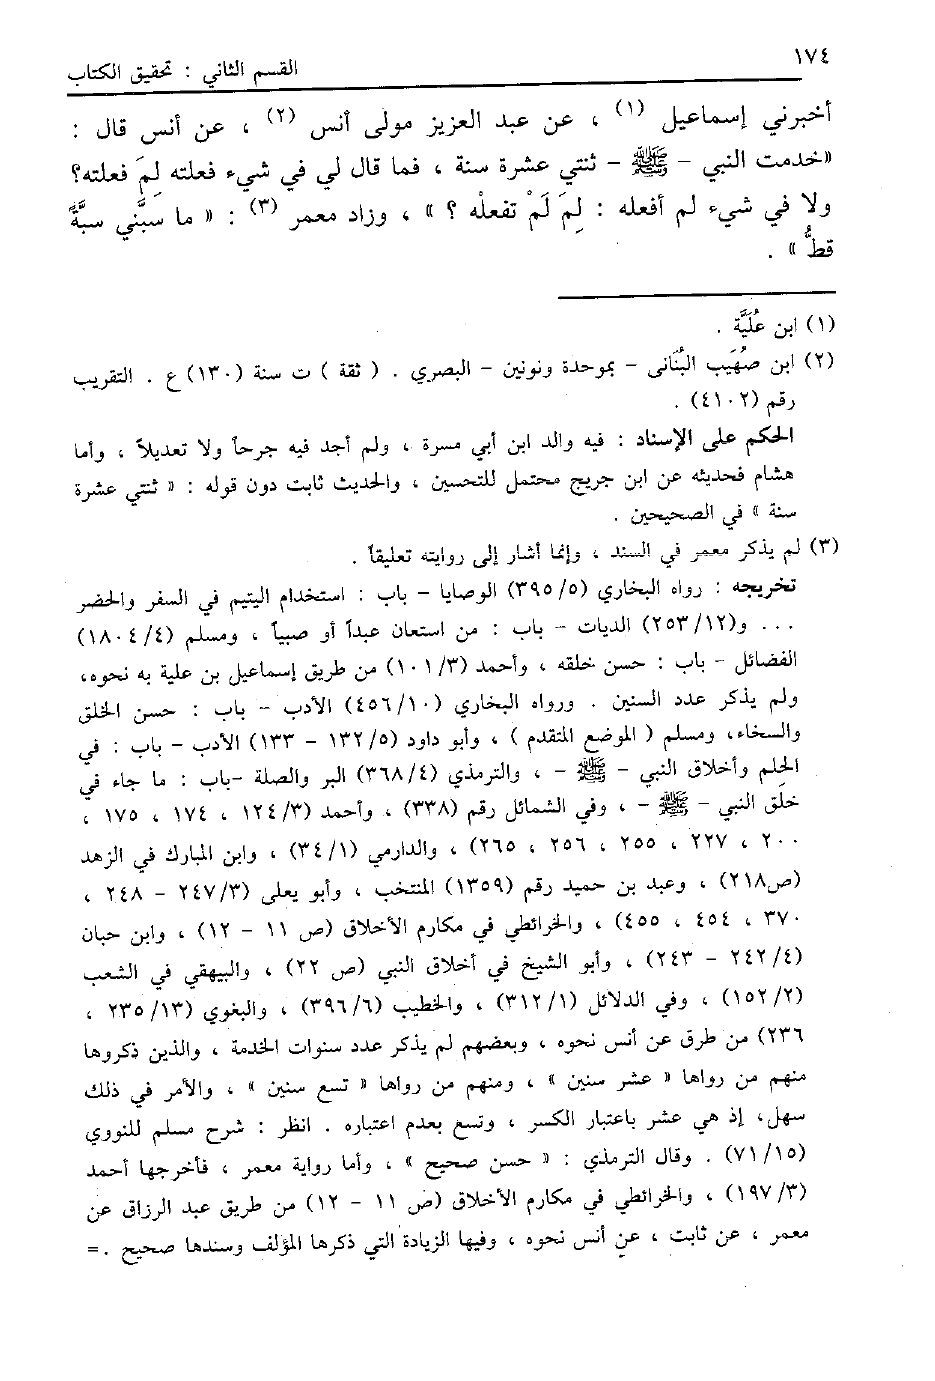 ١٧٤
القسم الثاني : تحقيق الكتاب
أخبرني إسماعيل (١) ، عن عبد العزيز مولى أنس (٢) ، عن أنس قال :
«خدمت النبي - ﷺ - ثنتي عشرة سنة ، فما قال لي في شيء فعلته لِمَ فعلته؟
ولا في شيء لم أفعله : لِمَ لَمْ تفعلْه ؟ » ، وزاد معمر (٣) : « ما سَبَّني سبَّةً
قطُّ » .
(١) ابن عُلَيَّة .
(٢) ابن صُهَيب البُنَانى - بموحدة ونونين - البصري . ( ثقة ) ت سنة (١٣٠) ع . التقريب
رقم (٤١٠٢) .
الحكم على الإسناد : فيه والد ابن أبي مسرة ، ولم أجد فيه جرحاً ولا تعديلاً ، وأما
هشام فحديثه عن ابن جريج محتمل للتحسين ، والحديث ثابت دون قوله : « ثنتي عشرة
سنة » في الصحيحين .
(٣) لم يذكر معمر في السند ، وإنما أشار إلى روايته تعليقاً .
تخريجه : رواه البخاري (٣٩٥/٥) الوصايا - باب : استخدام اليتيم في السفر والحضر
... و(٢٥٣/١٢) الديات - باب : من استعان عبداً أو صبياً ، ومسلم (١٨٠٤/٤)
الفضائل - باب : حسن خلقه ، وأحمد (١٠١/٣) من طريق إسماعيل بن علية به نحوه،
ولم يذكر عدد السنين . ورواه البخاري (٤٥٦/١٠) الأدب - باب : حسن الخلق
والسخاء، ومسلم ( الموضع المتقدم ) ، وأبو داود (١٣٢/٥ - ١٣٣) الأدب - باب : في
الحِلم وأخلاق النبي - ﷺ - ، والترمذي (٣٦٨/٤) البر والصلة -باب : ما جاء في
خلق النبي - ﷺ - ، وفي الشمائل رقم (٣٣٨) ، وأحمد (١٢٤/٣ ، ١٧٤ ، ١٧٥ ،
٢٠٠ ، ٢٢٧ ، ٢٥٥ ، ٢٥٦ ، ٢٦٥) ، والدارمي (٣٤/١) ، وابن المبارك في الزهد
(ص٢١٨) ، وعبد بن حميد رقم (١٣٥٩) المنتخب ، وأبو يعلى (٢٤٧/٣ - ٢٤٨ ،
٣٧٠ ، ٤٥٤ ، ٤٥٥) ، والخرائطي في مكارم الأخلاق (ص ١١ - ١٢) ، وابن حبان
(٢٤٢/٤ - ٢٤٣) ، وأبو الشيخ في أخلاق النبي (ص ٢٢) ، والبيهقي في الشعب
(١٥٢/٢) ، وفي الدلائل (٣١٢/١) ، والخطيب (٣٩٦/٦) ، والبغوي (٢٣٥/١٣ ،
٢٣٦) من طرق عن أنس نحوه ، وبعضهم لم يذكر عدد سنوات الخدمة ، والذين ذكروها
منهم من رواها « عشر سنين » ، ومنهم من رواها « تسع سنين » ، والأمر في ذلك
سهل، إذ هي عشر باعتبار الكسر ، وتسع بعدم اعتباره . انظر : شرح مسلم للنووي
(٧١/١٥) . وقال الترمذي : « حسن صحيح » ، وأما رواية معمر ، فأخرجها أحمد
(١٩٧/٣) ، والخرائطي في مكارم الأخلاق (ص ١١ - ١٢) من طريق عبد الرزاق عن
معمر ، عن ثابت ، عن أنس نحوه ، وفيها الزيادة التي ذكرها المؤلف وسندها صحيح .=